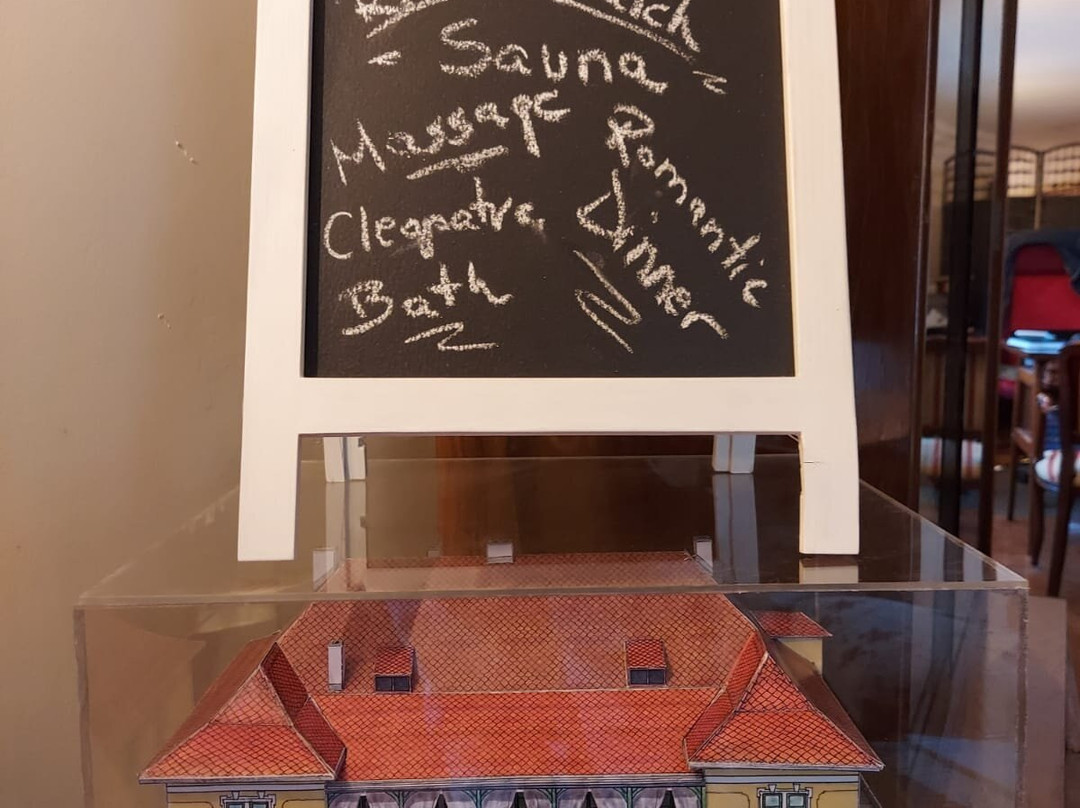 Sauna
Massage
Cleopatra
Bath
Romantic
dinner